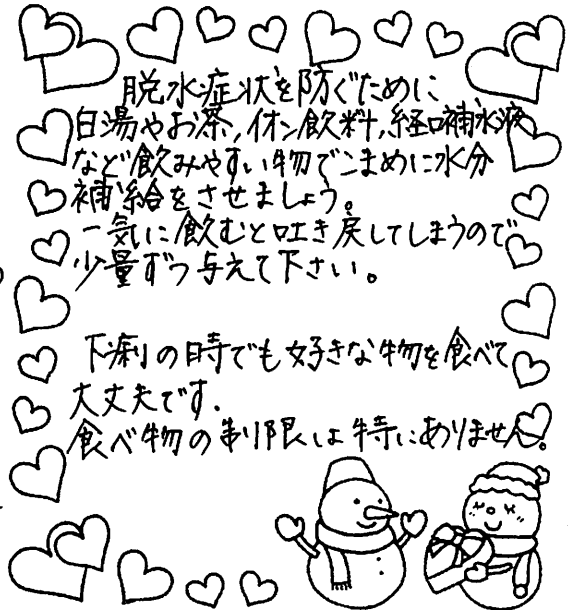 脱水症状を防ぐために
白湯やお茶,イオン飲料,経口補水液
など飲みやすい物でこまめに水分
補給をさせましょう。
一気に飲むと吐き戻してしまうので
少量ずつ与えて下さい。
下痢の時でも好きな物を食べて
大丈夫です.
食べ物の制限は特にありません。